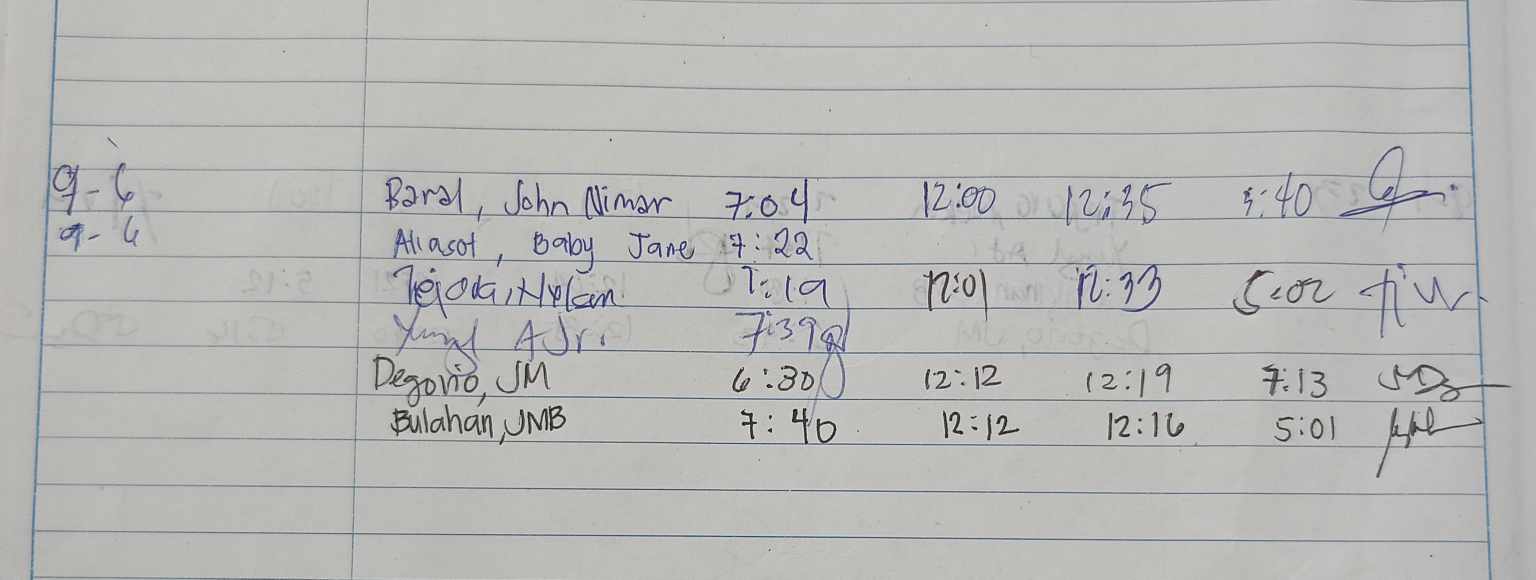 9-6 Baral, John Nimar 7:04 12:00 12:35 5:40
9-6 Aliasot, Baby Jane 7:22
Tejada, 7:19 12:01 12:33 5:02
A Jr. 7:39
Degorio, JM 6:30 12:12 12:19 7:13
Bulahan, JMB 7:40 12:12 12:16 5:01